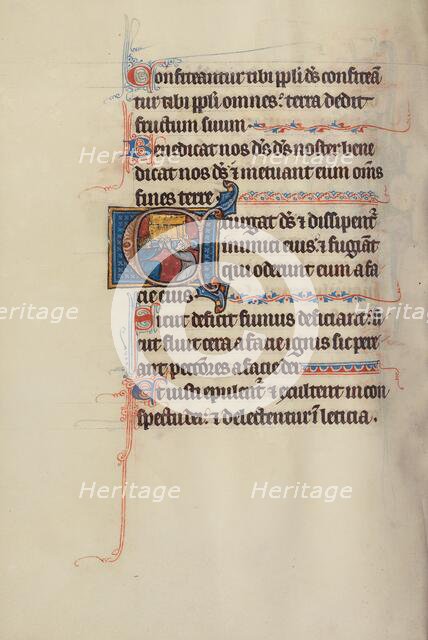 Confiteantur tibi ppli ds confiteā
tur tibi ppli omnes: terra dedit
fructum suum.
Benedicat nos ds ds noster bene
dicat nos ds ⁊ metuant eum oms
fines terre.
Exurgat ds ⁊ dissipent᷑
inimici eius: ⁊ fugiāt
qui oderunt eum a fa
cie eius.
Sicut deficit fumus deficiant: si
cut fluit cera a facie ignis sic pere
ant peccōres a facie dei.
Et iusti epulent᷑ ⁊ exultent in con
spectu dei: ⁊ delectentur ī leticia.
Heritage Heritage
Heritage Heritage
Heritage Heritage